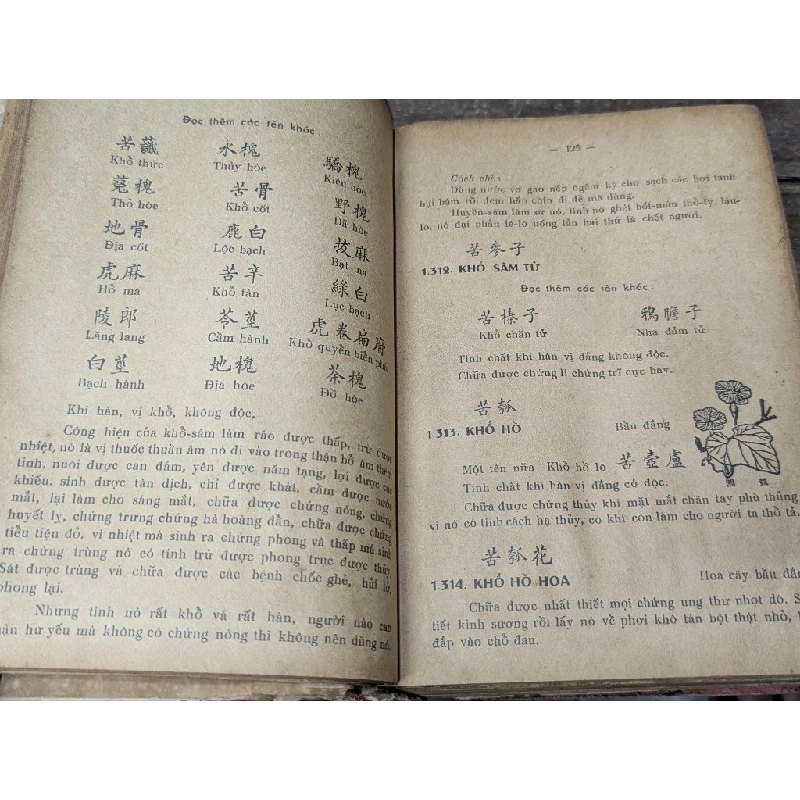 Đọc thêm các tên khác
苦蘵 水槐 驕槐
Khổ thức Thủy hòe Kiêu hòe
菟槐 苦骨 野槐
Thỏ hòe Khổ cốt Dã hòe
地骨 鹿白 拔麻
Địa cốt Lộc bạch Bạt ma
虎麻 苦辛 綠白
Hổ ma Khổ tân Lục bạch
陵郎 芩莖 虎卷扁府
Lăng lang Cầm hành Khổ quyển biển phủ
白莖 地槐 茶槐
Bạch hành Địa hòe Đồ hòe
Khí hàn, vị khổ, không độc,
Công hiệu của khổ-sâm làm ráo được thấp, trừ được
nhiệt, nó là vị thuốc thuần âm nó đi vào trong thận bổ âm thêm
tinh, nuôi được can đảm, yên được năm tạng, lợi được các
khiếu, sinh được tân dịch, chỉ được khát, cầm được nước
mắt, lại làm cho sáng mắt, chữa được chứng nóng, chứng
huyết lỵ, chứng trưng chứng hà hoàng đản, chữa được chứng
tiểu tiện đỏ, vì nhiệt mà sinh ra chứng phong và thấp mà sinh
ra chứng trùng nó có tính trừ được phong trục được thủy,
Sát được trùng và chữa được các bệnh chốc ghẻ, hủi lở,
phong lại.
Nhưng tính nó rất khổ và rất hàn, người nào can
thận hư yếu mà không có chứng nóng thì không nên dùng nó.
— 125 —
Cách chế :
Dùng nước vo gạo nếp ngâm kỹ cho sạch các hơi tanh
bụi bám rồi đem bắc chín đi để mà dùng.
Huyền-sâm làm sứ nó, tính nó ghét bối-mẫu thỏ-ty, lậu-
lo, nó đại phản lê-lo uống lẫn hai thứ là chết người.
苦參子
1.312. KHỔ SÂM TỬ
Đọc thêm các tên khác :
苦榛子 鴉膽子
Khổ chăn tử Nha đảm tử
Tính chất khí hàn vị đắng không độc.
Chữa được chứng lị chứng trĩ cực hay.
苦瓠
1.313. KHỔ HỒ Bầu đắng
Một tên nữa Khổ hồ lo 苦壺盧
Tính chất khí hàn vị đắng có độc.
Chữa được chứng thủy khí mặt mắt chân tay phù thũng
vì nó có tính cách hạ thủy, có khi còn làm cho người ta thổ tả.
苦瓠花
1.314. KHỔ HỒ HOA Hoa cây bầu đắng
Chữa được nhất thiết mọi chứng ung thư nhọt dò.
tiết kinh sương rồi lấy nó về phơi khô tán bột thật nhỏ,
đắp vào chỗ đau.